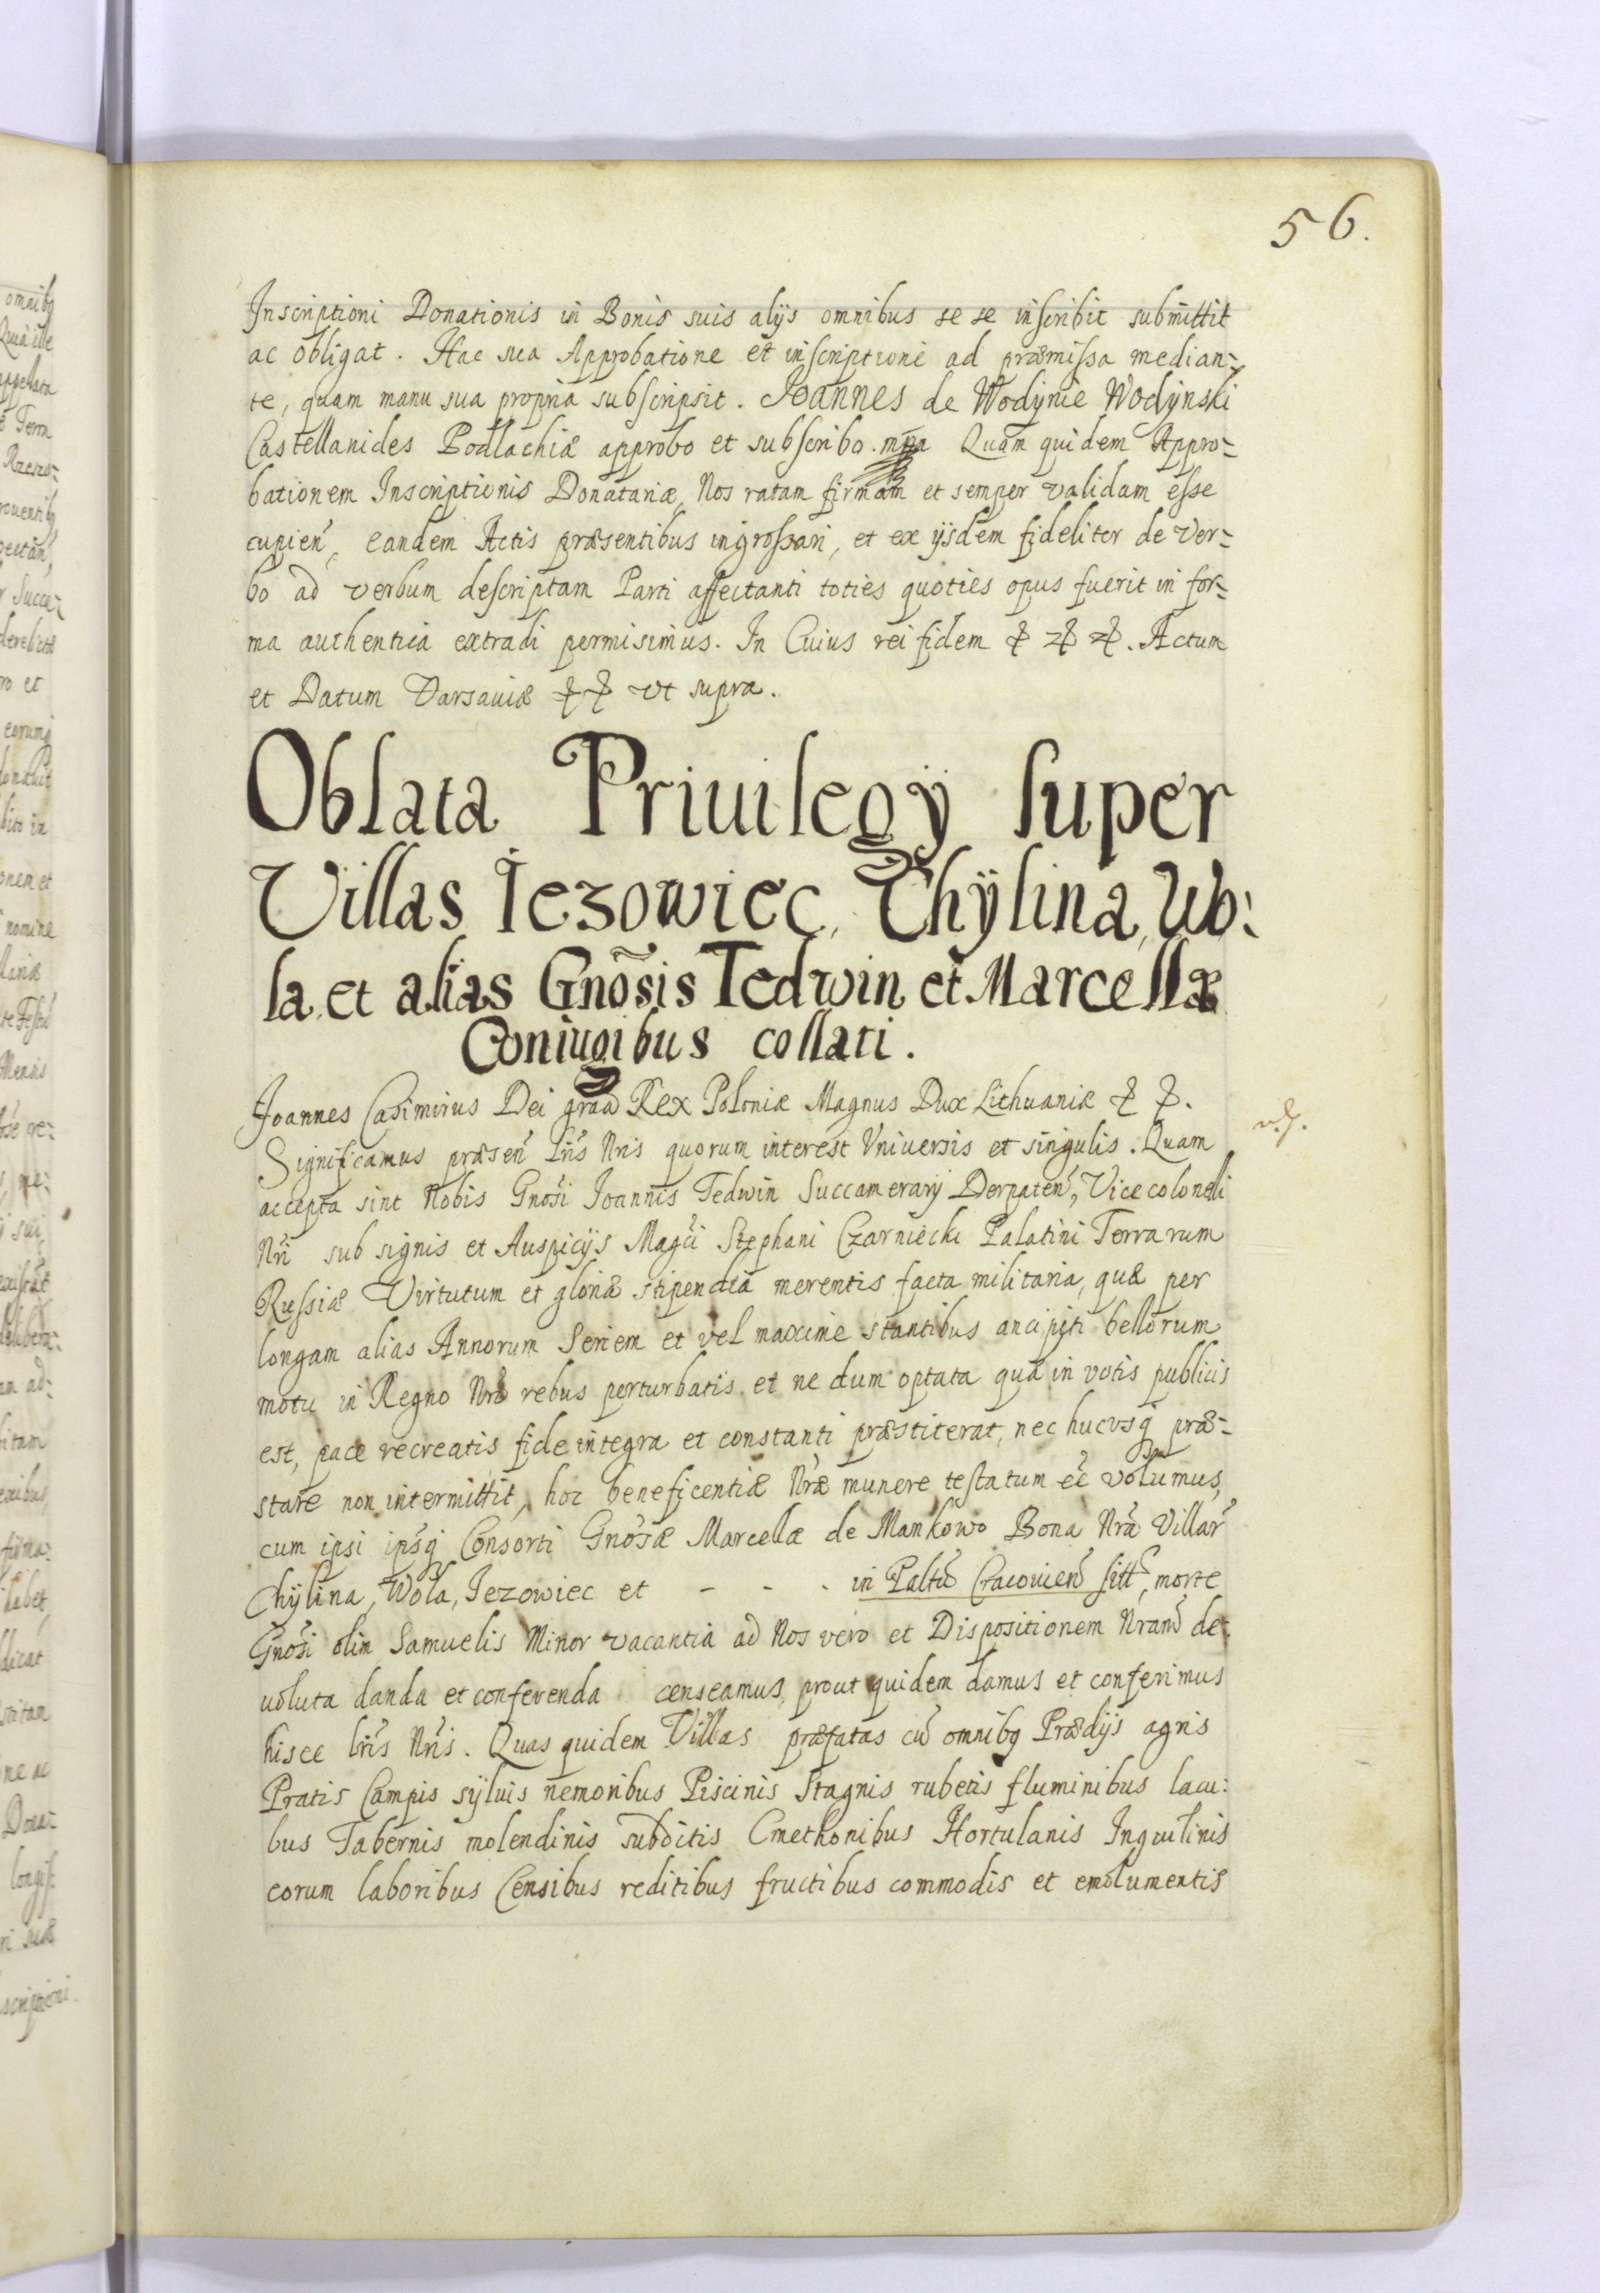 56.
Inscriptioni Donationis in Bonis suis alijs omnibus se se inscribit submittit
ac obligat. Hac sua Approbatione et inscriptione ad præmissa median-
te, quam manu sua propria subscripsit. Joannes de Wodynie Wodynski
Castellanides Podlachiæ approbo et subscribo. mpa Quam quidem Appro-
bationem Inscriptionis Donatariæ, Nos ratam firmam et semper validam esse
cupien̄, eandem Actis præsentibus ingrossari, et ex ijsdem fideliter de ver-
bo ad verbum descriptam Parti affectanti toties quoties opus fuerit in for-
ma authentica extradi permisimus. In Cuius rei fidem & & &. Actum
et Datum Varsaviæ & & ut supra.
Oblata Priuilegÿ super
Villas Iezowiec, Chÿlina, Wo:
la et alias Gnōsis Tedwin et Marcellæ
Coniugibus collati.
Joannes Casimirus Dei grāa Rex Poloniæ Magnus Dux Lithuaniæ & &.
Significamus præsen̄ lrīs Nrīs quorum interest Vniuersis et singulis. Quam
accepta sint Nobis Gnōsi Joannis Tedwin Succamerarÿ Derpaten̄, Vice coloneli
Nrī sub signis et Auspicijs Magcī Stephani Czarniecki Palatini Terrarum
Russiæ Virtutum et gloriæ stipendia merentis facta militaria, quæ per
longam alias Annorum Seriem et vel maxime stantibus ancipiti bellorum
motu in Regno Nrō rebus perturbatis et ne dum optata quâ in votis publicis
est, pace recreatis fide integra et constanti præstiterat, nec hucusq́ præ-
stare non intermittit, hoc beneficentiæ Nræ munere testatum eē volumus,
cum ipsi ipsq́ Consorti Gnōsæ Marcellæ de Mankowo Bona Nrā Villar̄
Chÿlina, Wola, Jezowiec et - - - in Palttū Cracouien̄ sitt̄, morte
Gnōsi olim Samuelis Minor vacantia ad Nos vero et Dispositionem Nram̄ de-
uoluta danda et conferenda censeamus, prout quidem damus et conferimus
hisce lrīs Nrīs. Quas quidem Villas præfatas cū omnibq Prædijs agris
Pratis Campis sÿluis nemoribus Piscinis Stagnis rubetis fluminibus lacu:
bus Tabernis molendinis subditis Cmethonibus Hortulanis Inquilinis
eorum laboribus Censibus reditibus fructibus commodis et emolumentis